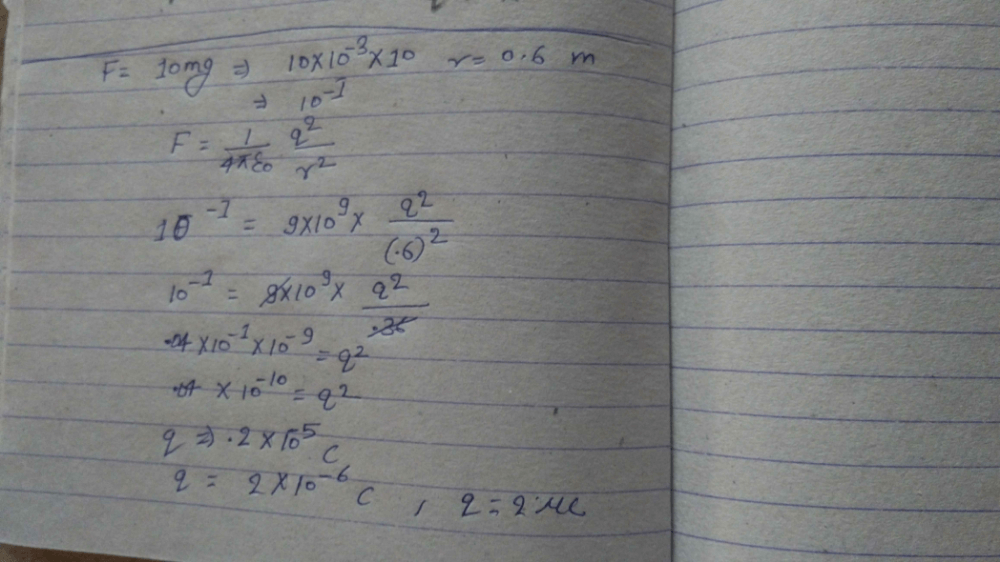 F = 10mg ⇒ 10×10⁻³×10 r = 0.6 m
⇒ 10⁻¹
F = 1/4πε₀ q²/r²
10⁻¹ = 9×10⁹× q²/(.6)²
10⁻¹ = 9×10⁹× q²/.36
.04 ×10⁻¹×10⁻⁹ = q²
.04 × 10⁻¹⁰ = q²
q ⇒ .2×10⁵ C
q = 2×10⁻⁶ C , q = 2 μc